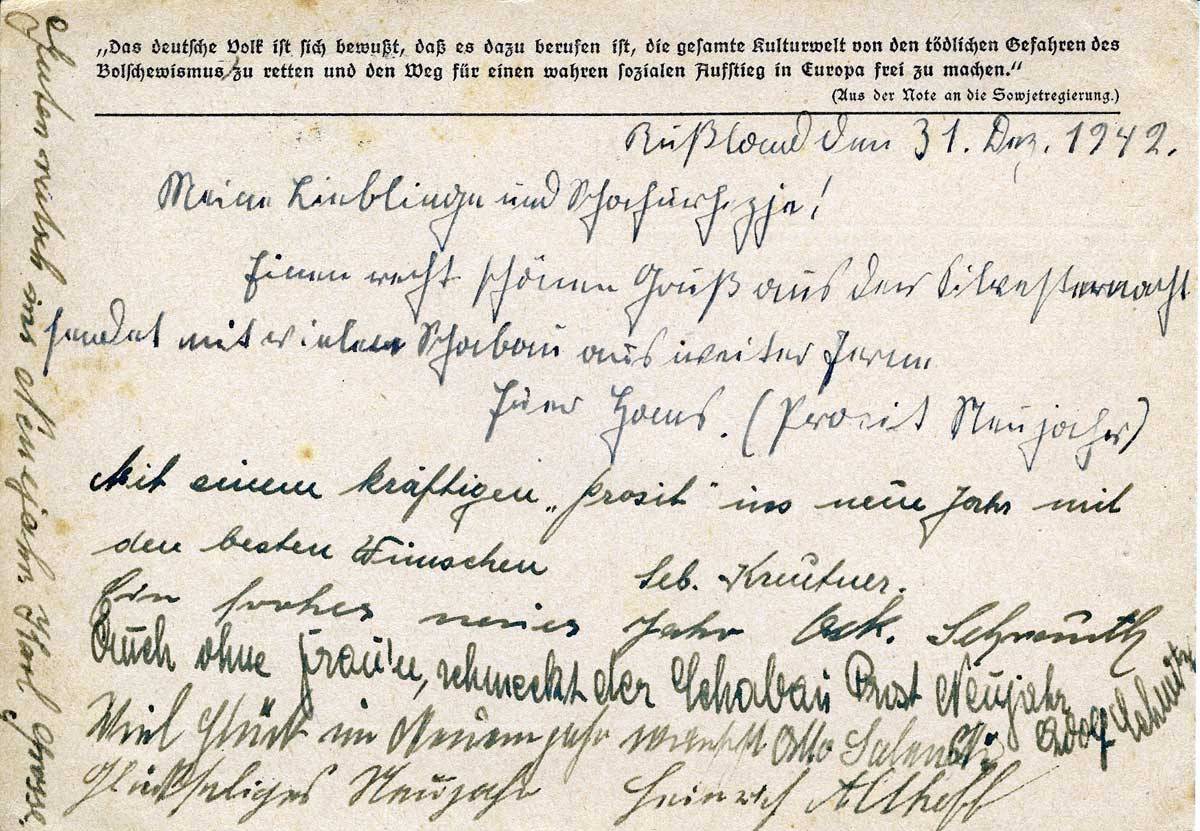 „Das deutsche Volk ist sich bewußt, daß es dazu berufen ist, die gesamte Kulturwelt von den tödlichen Gefahren des
Bolschewismus zu retten und den Weg für einen wahren sozialen Aufstieg in Europa frei zu machen.“
(Aus der Note an die Sowjetregierung.)
Rußland den 31. Dez. 1942.
Meine Lieblinge und
Einen recht schönen Gruß aus der Silvesternacht
sendet mit vielen Schabau aus weiter Ferne
Euer Hans. (Prosit Neujahr)
Mit einem kräftigen „Prosit“ ins neue Jahr mit
den besten Wünschen Seb. Kreutner.
Ein frohes neues Jahr
Auch ohne Frau'n, schmeckt der Schabau Prost Neujahr
Adolf
Viel Glück im Neuem Jahr wünscht Otto
Glückseliges Neujahr Heinrich Althoff
Guten Rutsch ins Neujahr Karl Grosse.